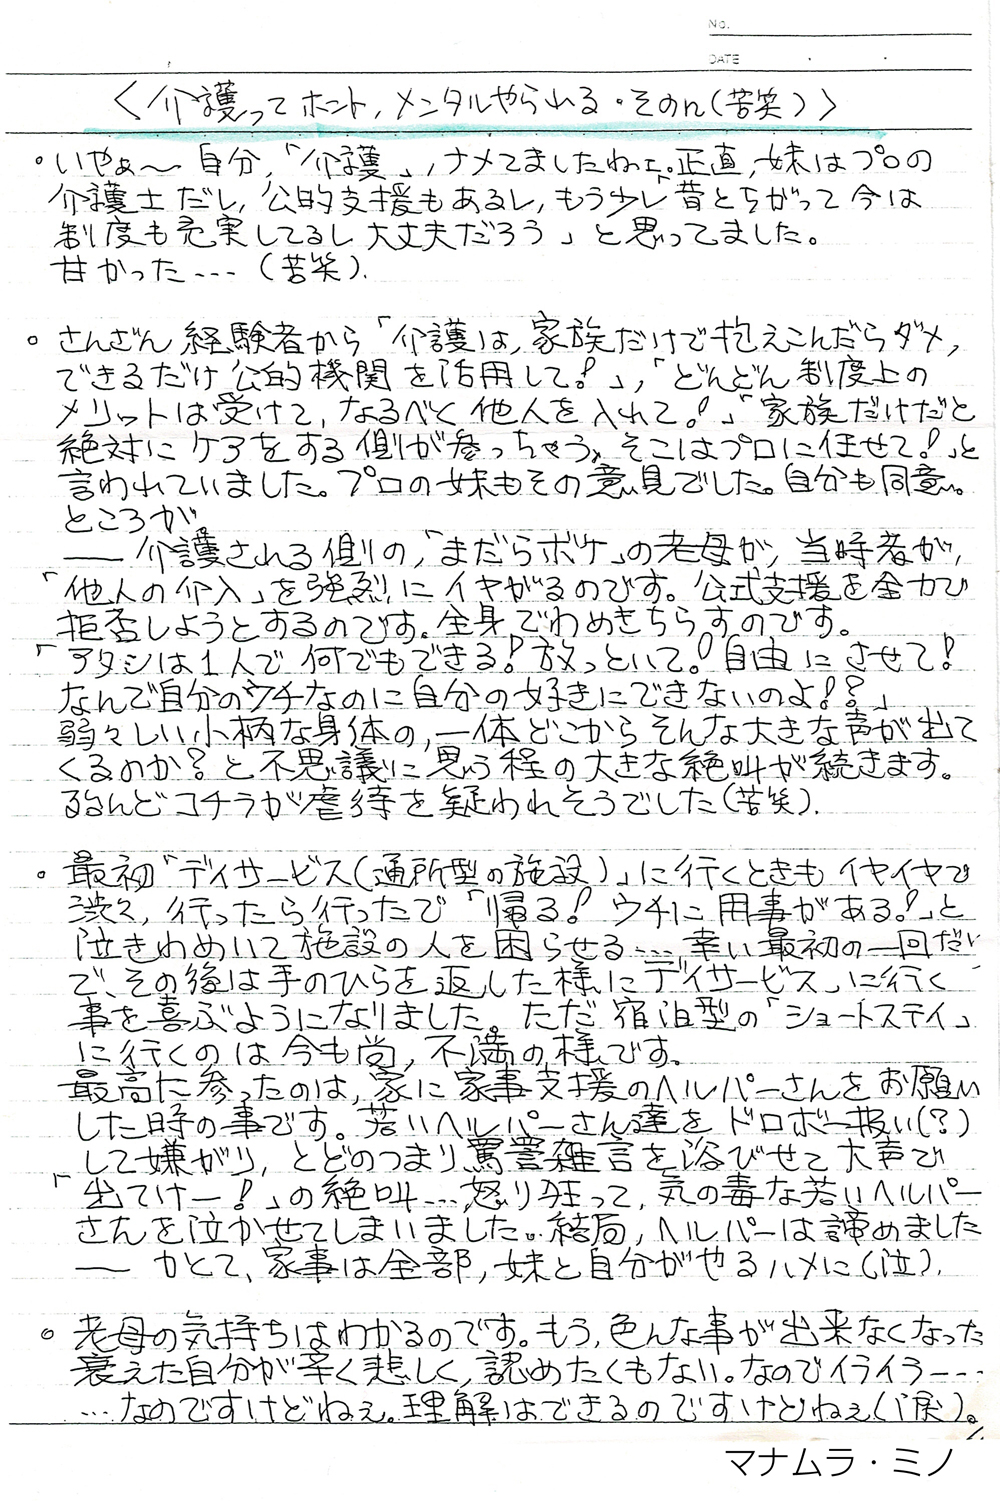 No.
DATE
〈介護ってホント,メンタルやられる・そのn(苦笑)〉
・いやぁ〜 自分,「介護」,ナメてましたねェ。正直,妹はプロの
介護士だし,公的支援もあるし,もう少し「昔とちがって今は
制度も充実してるし大丈夫だろう」と思ってました。
甘かった…(苦笑).
・さんざん経験者から「介護は,家族だけで抱えこんだらダメ,
できるだけ公的機関を活用して!」,「どんどん制度上の
メリットは受けて,なるべく他人を入れて!」「家族だけだと
絶対にケアをする側が参っちゃう,そこはプロに任せて!」と
言われていました。プロの妹もその意見でした。自分も同意。
ところが。
── 介護される側の,「まだらボケ」の老母が,当時者が,
「他人の介入」を強烈にイヤがるのです。公式支援を全力で
拒否しようとするのです。全身でわめきちらすのです。
「アタシは1人で何でもできる!放っといて!自由にさせて!
なんで自分のウチなのに自分の好きにできないのよ!?」
弱々しい小柄な身体の,一体どこからそんな大きな声が出て
くるのか?と不思議に思う程の大きな絶叫が続きます。
殆んどコチラが虐待を疑われそうでした(苦笑).
・最初「デイサービス(通所型の施設)」に行くときもイヤイヤで
渋々,行ったら行ったで「帰る!ウチに用事がある!」と
泣きわめいて施設の人を困らせる…幸い最初の一回だけ
で、その後は手のひらを返した様に「デイサービス」に行く
事を喜ぶようになりました。ただ宿泊型の「ショートステイ」
に行くのは今も尚,不満の様です。
最高に参ったのは,家に家事支援のヘルパーさんをお願い
した時の事です。若いヘルパーさん達をドロボー扱い(?)
して嫌がり,とどのつまり罵詈雑言を浴びせて大声で
「出てけー!」の絶叫…,怒り狂って,気の毒な若いヘルパー
さんを泣かせてしまいました。結局,ヘルパーは諦めました
── かくて、家事は全部,妹と自分がやるハメに(泣).
・老母の気持ちはわかるのです。もう,色んな事が出来なくなった
衰えた自分が辛く悲しく,認めたくもない。なのでイライラ…
…なのですけどねぇ。理解はできるのですけどねぇ(涙)。
マナムラ・ミノ